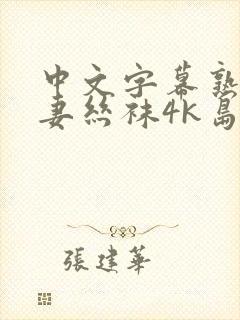 中文字幕熟
妻丝袜4K岛
張建華